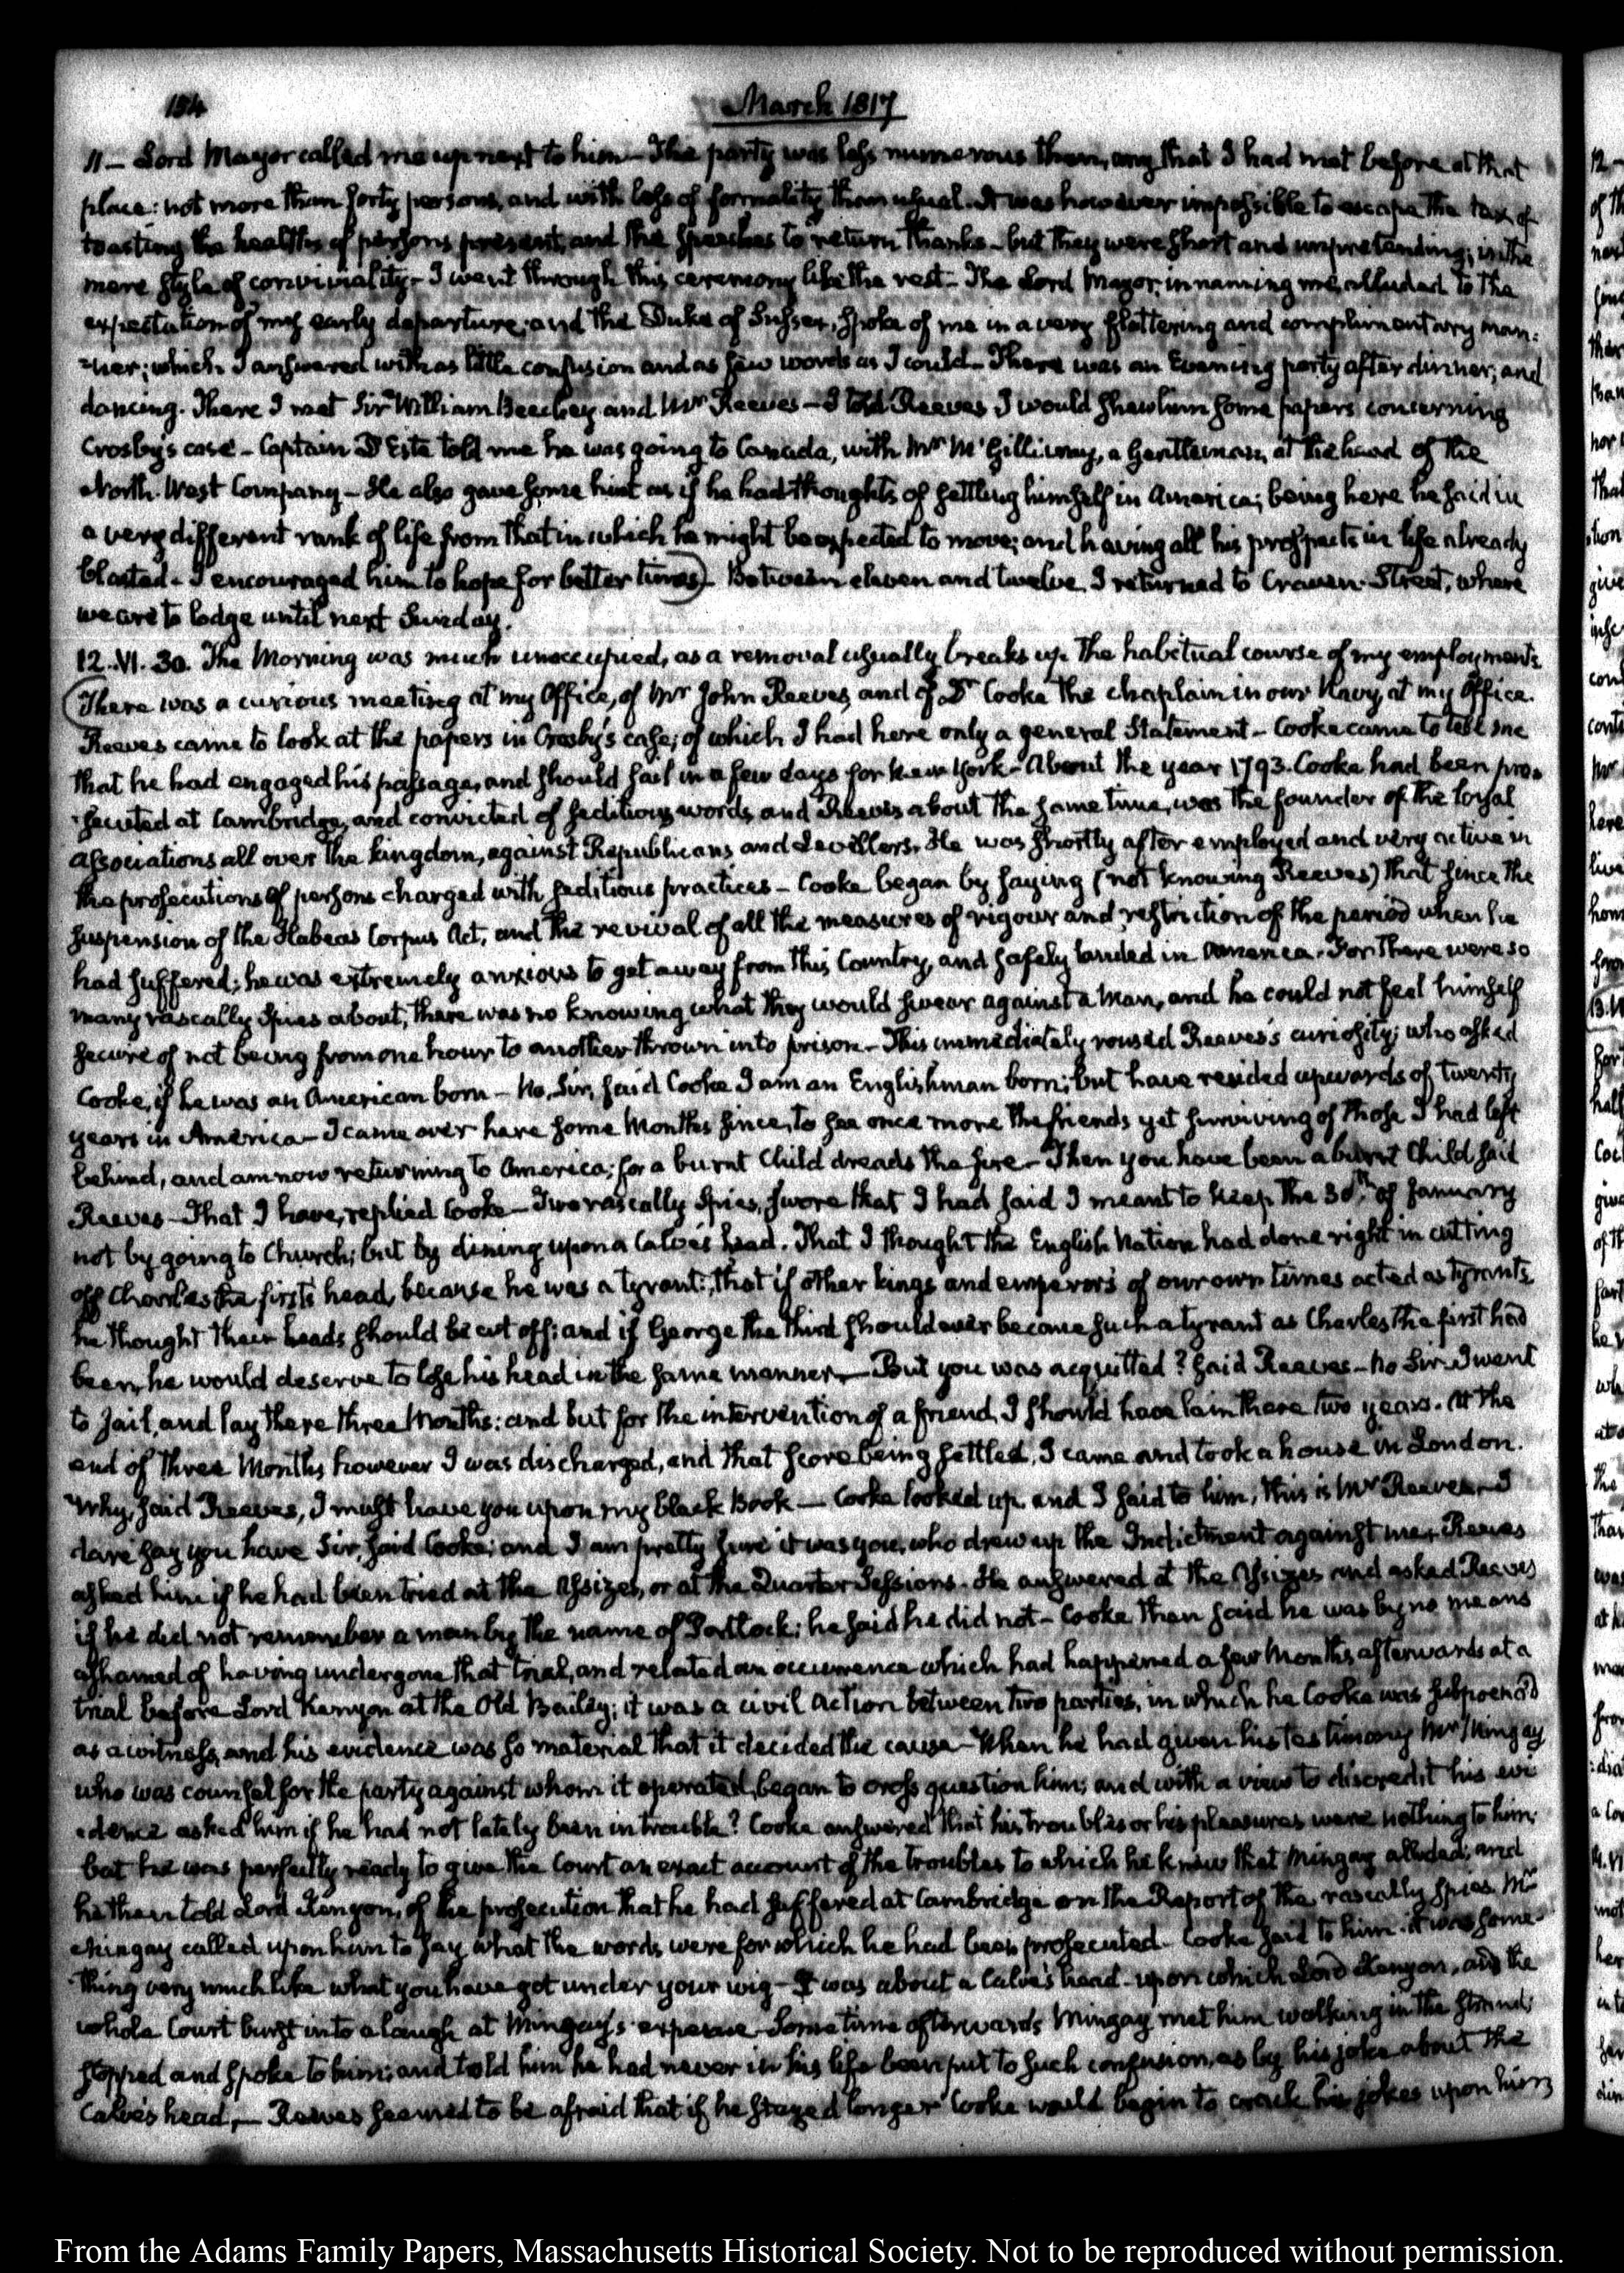 154
March 1817
11 — Lord Mayor called me up next to him — The party was less numerous than, any that I had met before at that
place: not more than forty persons, and with less of formality than usual. It was however impossible to escape the tax of
toasting the healths of persons present, and the speeches to return thanks — but they were short and unpretending; in the
mere style of conviviality — I went through this ceremony like the rest — The Lord Mayor, in naming me, alluded to the
expectation of my early departure; and the Duke of Sussex, spoke of me in a very flattering and complimentary man:
:ner; which I answered with as little confusion and as few words as I could — There was an Evening party after dinner; and
dancing. There I met Sir William Beechey and Mr Reeves — I told Reeves I would shew him some papers concerning
Crosby's case — Captain D'Este told me he was going to Canada, with Mr McGillivray, a Gentleman, at the head of the
North-West Company — He also gave some hint as if he had thoughts of settling himself in America; being here he said in
a very different rank of life from that in which he might be expected to move; and having all his prospects in life already
blasted — I encouraged him to hope for better times) — Between eleven and twelve I returned to Craven-Street, where
we are to lodge until next Sunday.
12. VI. 30. The Morning was much unoccupied, as a removal usually breaks up the habitual course of my employments
(There was a curious meeting at my Office, of Mr John Reeves, and of Dr Cooke the chaplain in our Navy, at my Office.
Reeves came to look at the papers in Crosby's case; of which I had here only a general Statement — Cooke came to tell me
that he had engaged his passage, and should sail in a few days for New York — About the year 1793. Cooke had been pro:
:secuted at Cambridge, and convicted of seditious words, and Reeves about the same time, was the founder of the loyal
associations all over the kingdom, against Republicans and Levellers. He was shortly after employed and very active in
the prosecutions of persons charged with seditious practices — Cooke began by saying (not knowing Reeves) that since the
suspension of the Habeas Corpus Act, and the revival of all the measures of rigour and restriction of the period when he
had suffered; he was extremely anxious to get away from this Country, and safely landed in America. For there were so
many rascally spies about, there was no knowing what they would swear against a Man, and he could not feel himself
secure of not being from one hour to another thrown into prison — This immediately roused Reeves's curiosity; who asked
Cooke, if he was an American born — No, Sir, said Cooke I am an Englishman born; but have resided upwards of twenty
years in America — I came over here some Months since, to see once more the friends yet surviving of those I had left
behind, and am now returning to America; for a burnt Child dreads the fire — Then you have been a burnt Child said
Reeves — That I have, replied Cooke — Two rascally Spies, swore that I had said I meant to keep the 30th of January
not by going to Church; but by dining upon a Calve's head. That I thought the English Nation had done right in cutting
off Charles the first's head, because he was a tyrant: that if other kings and emperors of our own times acted as tyrants
he thought their heads should be cut off: and if George the Third should ever become such a tyrant as Charles the first had
been, he would deserve to lose his head in the same manner — But you was acquitted? said Reeves — No Sir — I went
to Jail, and lay there three Months: and but for the intervention of a friend, I should have lain there two years. At the
end of three Months however I was discharged, and that score being settled, I came and took a house in London.
Why, said Reeves, I must have you upon my Black Book — Cooke looked up and I said to him, this is Mr Reeves — I
dare say you have Sir, said Cooke; and I am pretty sure it was you, who drew up the Indictment against me — Reeves
asked him if he had been tried at the Assizes, or at the Quarter Sessions. He answered at the Assizes and asked Reeves
if he did not remember a man by the name of Portlock: he said he did not — Cooke then said he was by no means
ashamed of having undergone that trial, and related an occurrence which had happened a few Months afterwards at a
trial before Lord Kenyon at the Old Bailey; it was a civil action between two parties, in which he Cooke was subpoena'd
as a witness, and his evidence was so material that it decided the cause — When he had given his testimony Mr Mingay
who was counsel for the party against whom it operated, began to cross question him; and with a view to discredit his evi
:dence asked him if he had not lately been in trouble? Cooke answered that his troubles or his pleasures were nothing to him;
but he was perfectly ready to give the Court an exact account of the troubles to which he knew that Mingay alluded; and
he then told Lord Kenyon, of the prosecution that he had suffered at Cambridge on the Report of the rascally spies. Mr
Mingay called upon him to say what the words were for which he had been prosecuted — Cooke said to him — it was some-
thing very much like what you have got under your wig — It was about a Calve's head — upon which Lord Kenyon, and the
whole Court burst into a laugh at Mingay's expense — Some time afterwards Mingay met him walking in the Strand;
stopped and spoke to him; and told him he had never in his life been put to such confusion, as by his joke about the
Calve's head, — Reeves seemed to be afraid that if he stayed longer Cooke would begin to crack his jokes upon him
From the Adams Family Papers, Massachusetts Historical Society. Not to be reproduced without permission.